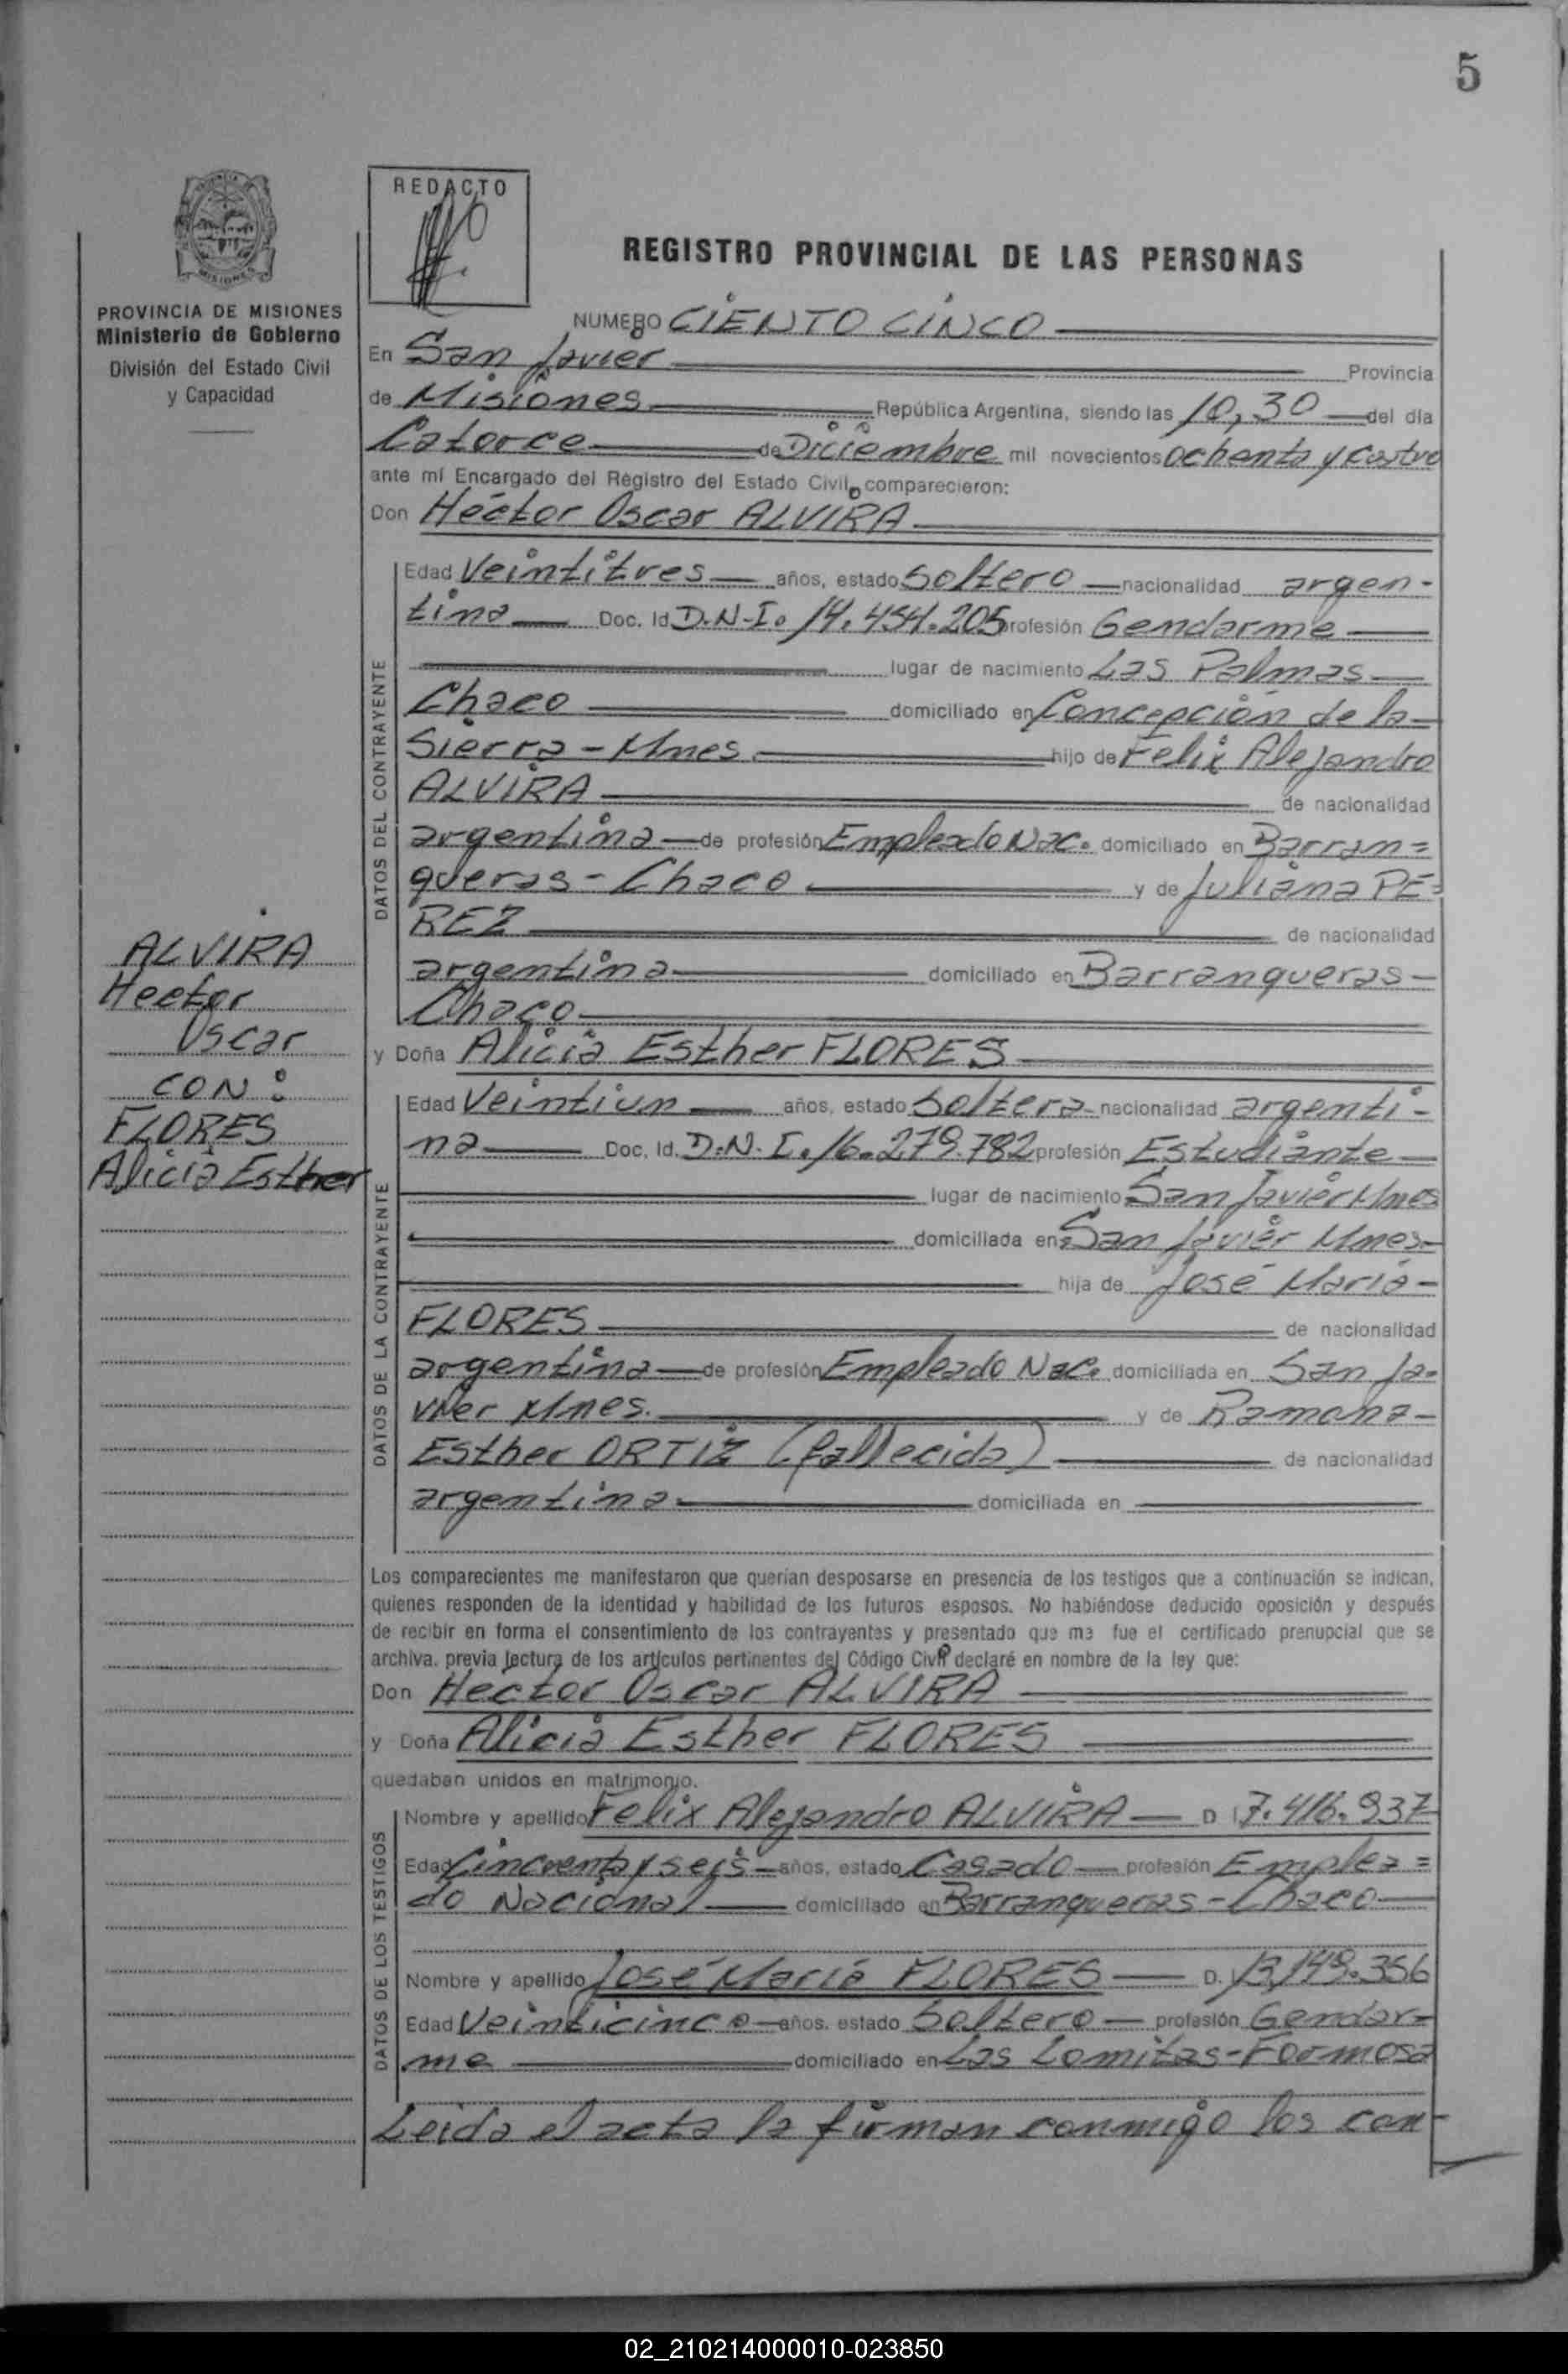 5
REDACTO
REGISTRO PROVINCIAL DE LAS PERSONAS
PROVINCIA DE MISIONES
Ministerio de Gobierno
División del Estado Civil
y Capacidad
NUMERO CIENTO CINCO
En San Javier Provincia
de Misiones República Argentina, siendo las 10,30 del día
Catorce de Diciembre mil novecientos ochenta y cuatro
ante mí Encargado del Registro del Estado Civil, comparecieron:
Don Héctor Oscar ALVIRA
DATOS DEL CONTRAYENTE
Edad Veintitres años, estado Soltero nacionalidad argen-
tina Doc. Id. D.N.I. 14.454.205 profesión Gendarme
lugar de nacimiento Las Palmas
Chaco domiciliado en Concepción de la
Sierra - Mnes. hijo de Felix Alejandro
ALVIRA de nacionalidad
argentina de profesión Empleado Nac. domiciliado en Barran=
queras - Chaco y de Juliana PE=
REZ de nacionalidad
argentina domiciliado en Barranqueras-
Chaco
ALVIRA
Hector
Oscar
CON:
FLORES
Alicia Esther
y Doña Alicia Esther FLORES
DATOS DE LA CONTRAYENTE
Edad Veintiun años, estado Soltera nacionalidad argenti-
na Doc. Id. D.N.I. 16.279.782 profesión Estudiante
lugar de nacimiento San Javier Mnes
domiciliada en San Javier Mnes.
hija de José María
FLORES de nacionalidad
argentina de profesión Empleado Nac. domiciliada en San Ja=
vier Mnes. y de Ramona
Esther ORTIZ (fallecida) de nacionalidad
argentina domiciliada en
Los comparecientes me manifestaron que querían desposarse en presencia de los testigos que a continuación se indican,
quienes responden de la identidad y habilidad de los futuros esposos. No habiéndose deducido oposición y después
de recibir en forma el consentimiento de los contrayentes y presentado que me fue el certificado prenupcial que se
archiva, previa lectura de los artículos pertinentes del Código Civil declaré en nombre de la ley que:
Don Hector Oscar ALVIRA
y Doña Alicia Esther FLORES
quedaban unidos en matrimonio.
DATOS DE LOS TESTIGOS
Nombre y apellido Felix Alejandro ALVIRA D I 7.416.937
Edad Cincuenta y seis años, estado Casado profesión Emplea=
do Nacional domiciliado en Barranqueras - Chaco
Nombre y apellido José María FLORES D. 13,149.356
Edad Veinticinco años, estado Soltero profesión Gendar=
me domiciliado en Las Lomitas - Formosa
Leida el acta la firman conmigo los con-
02_210214000010-023850